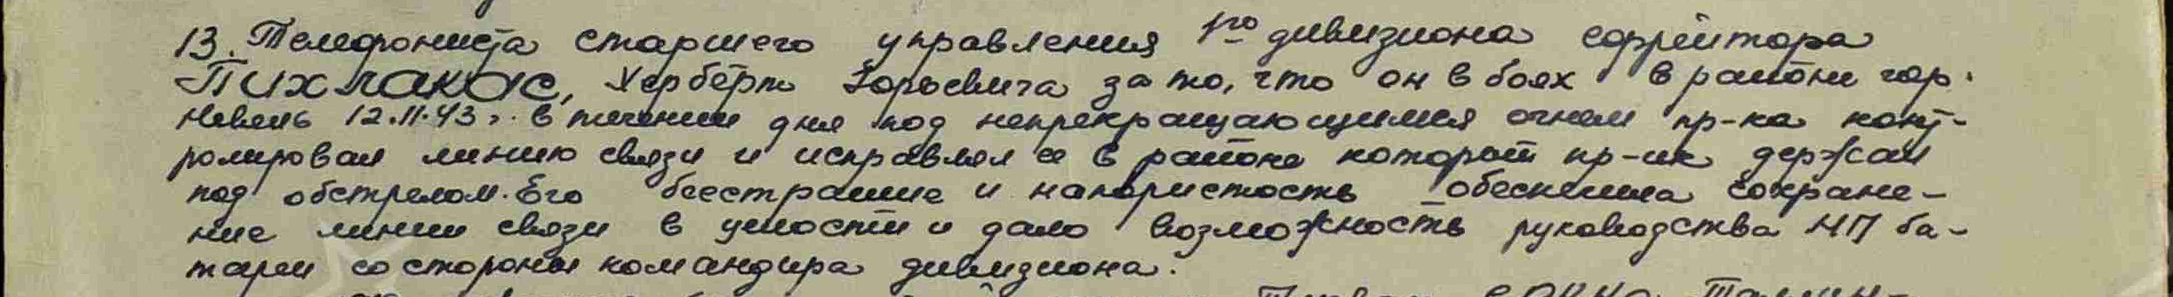 13. Телефониста старшего управления 1го дивизиона ефрейтора
ПИХЛАКАС, Херберт Юрьевича за то, что он в боях в районе гор.
Невель 12.11.43 г. в течении дня под непрекращающимся огнем пр-ка конт-
ролировал линию связи и исправлял ее в районе который пр-ик держал
под обстрелом. Его бесстрашие и напористость обеспечила сохране-
ние линии связи в целости и дало возможность руководства НП ба-
тареи со стороны командира дивизиона.